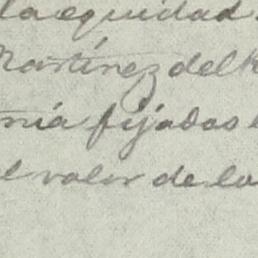 la equidad
Martínez del R
nía fijadas
l valor de la